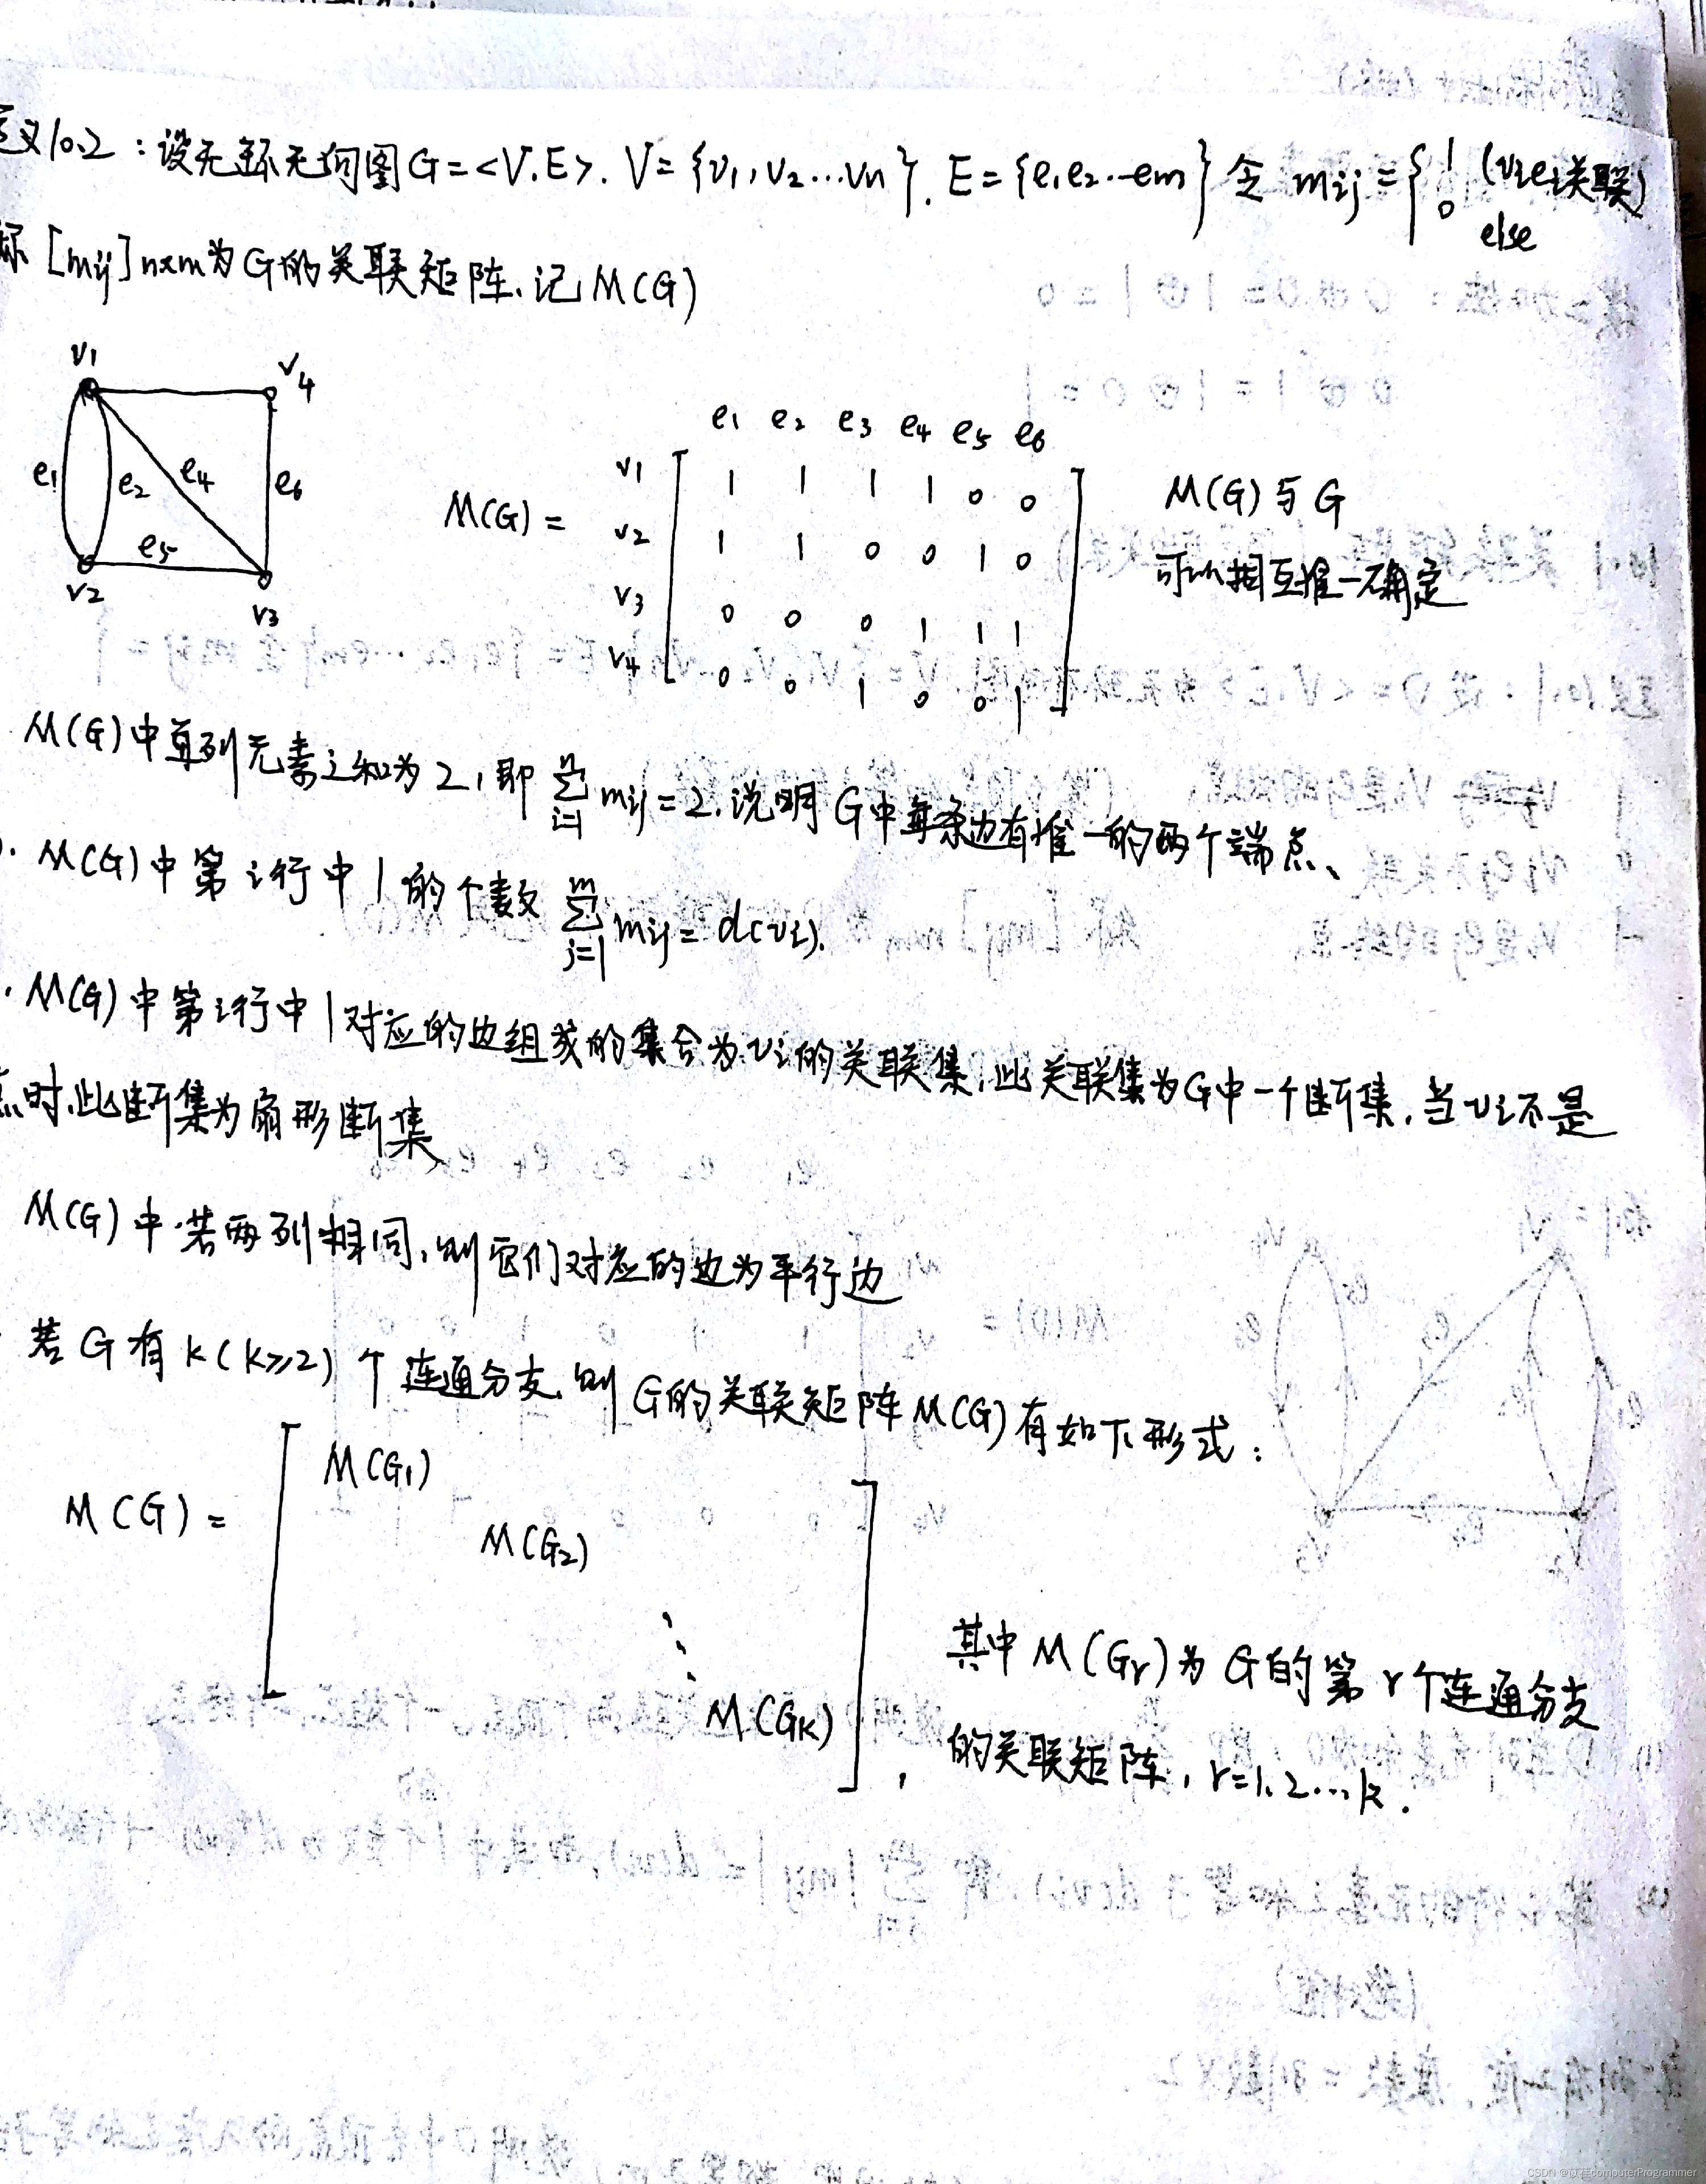 义10.2：设无环无向图G=<V.E>. V={v1,v2...vn}. E={e1e2...em} 令 mij={1 (viej关联)
0 else
称 [mij]n×m为G的关联矩阵.记M(G)
v1 v4
e1 e2 e4 e6
e5
v2 v3
e1 e2 e3 e4 e5 e6
M(G)=
v1 1 1 1 1 0 0
v2 1 1 0 0 1 0
v3 0 0 0 1 1 1
v4 0 0 1 0 0 1
M(G)与G
可以相互唯一确定
M(G)中每列元素之和为2,即 ∑(i=1,n) mij=2.说明G中每条边有唯一的两个端点、
. M(G)中第i行中1的个数 ∑(j=1,m) mij= d(vi).
. M(G)中第i行中1对应的边组成的集合为vi的关联集,此关联集为G中一个断集.当vi不是
点时.此断集为扇形断集
M(G)中.若两列相同,则它们对应的边为平行边
若G有k(k≥2)个连通分支.则G的关联矩阵M(G)有如下形式:
M(G)=
M(G1)
M(G2)
⋱
M(Gk)
,
其中M(Gr)为G的第r个连通分支
的关联矩阵,r=1.2...k.
computerProgrammer